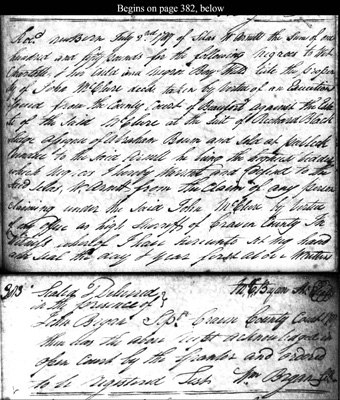 Begins on page 382, below
Rec.d Newbern July 2nd 1787 of Silas W. Arnett the Sum of one
hundred and fifty pounds for the following Negroes to Wit
Charlotte & her Child and Negroe Boy the Proper
ty of John McClure decd. taken by Virtue of an Execution
Issued from the County Court of Beauford against the Esta
te of the said McClure at the Suit of Richard Black
ledge Assignee of Abraham Bevin and Sold at publick
to the said Arnett he being the highest bidder
which Negroes I hereby warrant and defend to the
said Silas W. Arnett from the Claim of any person
claiming under the said John McClure by Virtue
of my office as high Sheriff of Craven County In
Witness whereof I have hereunto set my hand
and Seal the day & year first above Written
Sealed Delivered
in the presence of
John Bryan
Craven County Court
then was the above acknowledged in
open Court by the Grantor and ordered
to be registered Test Wm. Bryan